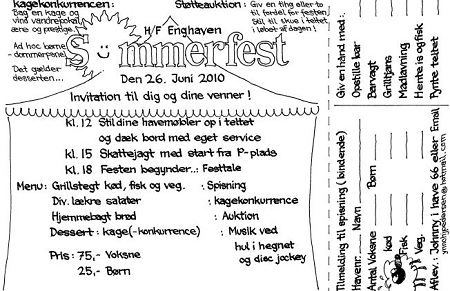 Kagekonkurrencen:
Bag en kage og
vind vandrepokal
ære og prestige.
Støtteauktion: Giv en ting eller to
til fordel for festen.
Stil til skue i teltet
i løbet af dagen!
Ad hoc børne
-dommerpanel
Det gælder
desserten...
H/F Enghaven
Sommerfest
Den 26. Juni 2010
Invitation til dig og dine venner!
Kl. 12 Stil dine havemøbler op i teltet
og dæk bord med eget service
Kl. 15 Skattejagt med start fra P-plads
Kl. 18 Festen begynder... Festtale
Menu: Grillstegt kød, fisk og veg. : Spisning
Div. lækre salater : kagekonkurrence
Hjemmebagt brød : Auktion
Dessert: kage(-konkurrence) : Musik ved
hul i hegnet
og disc jockey
Pris: 75,- Voksne
25,- Børn
Tilmelding til spisning (bindende)
Havenr.___ Navn
Antal Voksne Børn
kød
Fisk
Veg.
Aflev.: Johnny i have 66 eller Email
Giv en hånd med:
Opstille bar
Barvagt
Grilltjans
Madlavning
Hente is og fisk
Pynte teltet